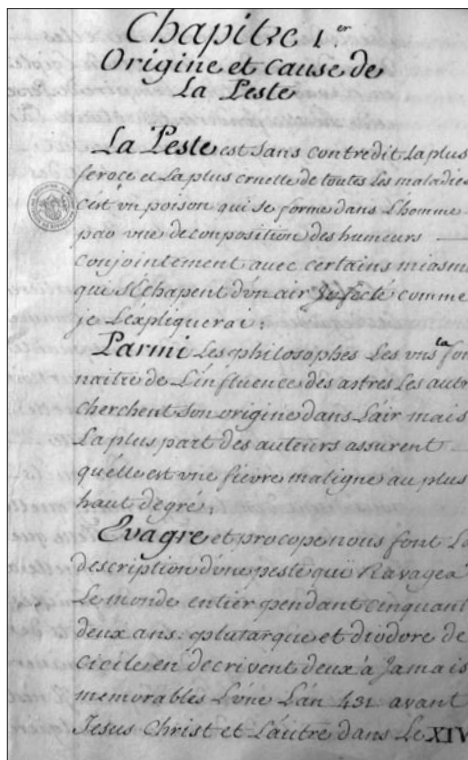 Chapitre 1.er
Origine et cause de
La Peste
La Peste est sans contredit la plus
feroce et la plus cruelle de toutes les maladies
c'ést vn poison qui se forme dans L'homme
par vne deconposition des humeurs
conjointement avec certains miasm
qui s'Echapent d'vn air Jnfecté comme
je L'expliquerai:
Parmi Les philosophes Les vns la fon
naitre de L'influence des astres Les autr
cherchent son origine dans L'air mais
La plus part des auteurs assurent
qu'élle est vne fievre maligne au plus
haut degré.
Evagre et procope nous font La
description d'vne peste qui Ravagea
Le monde entier pendant cinquant
deux ans. plutarque et diodore de
Cicile en décrivent deux à Jamais
memorables L'vne L'an 431. avant
Jesus Christ et L'autre dans Le XIV